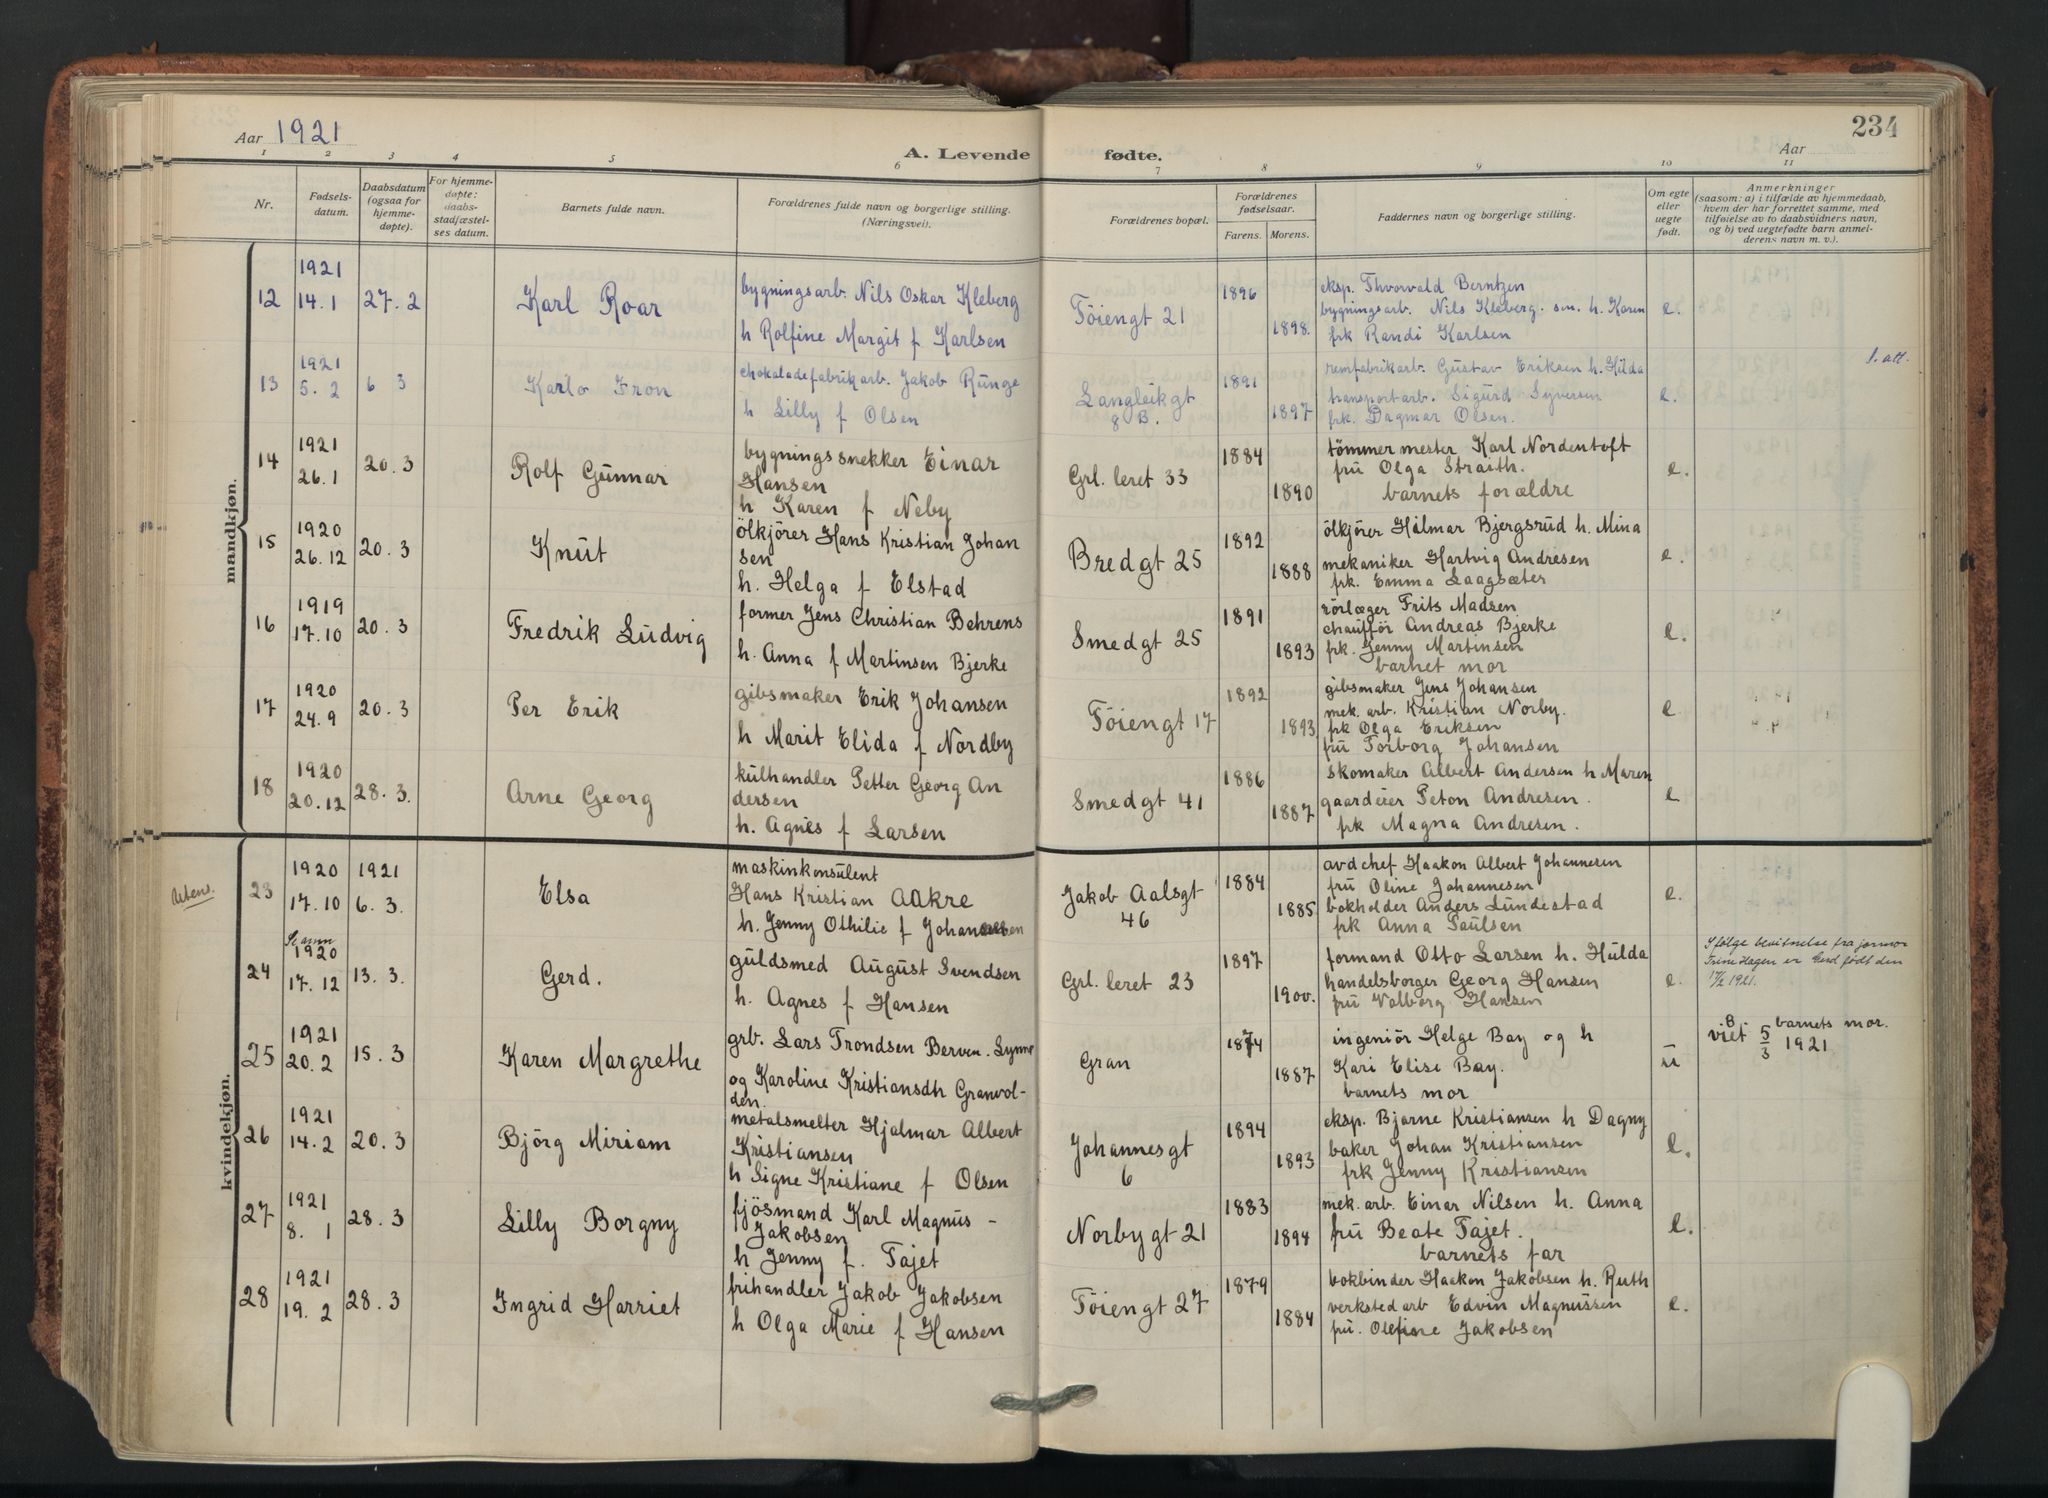 234
Aar 1921
A. Levende fødte.
Aar
1 2 3 4 5 6 7 8 9 10 11
Nr.
Fødsels-
datum.
Daabsdatum
(ogsaa for
hjemme-
døpte).
For hjemme-
døpte:
daabs-
stadfæstel-
ses datum.
Barnets fulde navn.
Forældrenes fulde navn og borgerlige stilling.
(Næringsvei).
Forældrenes bopæl.
Forældrenes
fødselsaar.
Farens. Morens.
Faddernes navn og borgerlige stilling.
Om egte
eller
uegte
født.
Anmerkninger
(saasom: a) i tilfælde av hjemmedaab,
hvem der har forrettet samme, med
tilføielse av to daabsvidners navn,
og b) ved uegtefødte barn anmel-
derens navn m. v.).
mandkjøn.
12
1921
14.1
27.2
Karl Roar
bygningsarb. Nils Oskar Kleberg
h Rolfine Margit f Karlsen
Töiengt 21
1896
1898.
eksp. Thorvald Berntzen
bygningsarb. Nils Kleberg. sen. h. Karen
frk Randi Karlsen
e.
13
1921
5.2
6 3
Karlo Fron
chokoladefabrikarb. Jakob Runge
h Lilly f Olsen
Langleikgt
8 B.
1891
1897
remfabrikarb. Gustav Eriksen h. Hilda
transportarb. Sigurd Syversen
frk. Dagmar Olsen.
e.
1. att.
14
1921
26.1
20.3
Rolf Gunnar
bygningssnekker Einar
Hansen
h Karen f Neby
Grl. leret 33
1884
1890
tömmermester Karl Nordentoft
fru Olga Straith.
barnets forældre
e.
15
1920
26.12
20.3
Knut
ölkjörer Hans Kristian Johan
sen
h. Helga f Elstad
Bredgt 25
1892
1888
ölkjörer Hilmar Bjergsrud h. Mina
mekaniker Hartvig Andresen
frk. Emma Laagsæter
e.
16
1919
17.10
20.3
Fredrik Ludvig
former Jens Christian Behrens
h. Anna f Martinsen Bjerke
Smedgt 25
1891
1893
rörlæger Frits Madsen
chaufför Andreas Bjerke
frk. Jenny Martinsen
barnet mor
e.
17
1920
24.9
20.3
Per Erik
gibsmaker Erik Johansen
h Marit Elida f Nordby
Töiengt 17
1892
1893
gibsmaker Jens Johansen
mek. arb. Kristian Norby.
frk Olga Eriksen
fru Torborg Johansen
e
18
1920
20.12
28.3.
Arne Georg
kulhandler Petter Georg An
dersen
h. Agnes f Larsen
Smedgt 41
1886
1887
skomaker Albert Andersen h Maren
gaardeier Peton Andresen.
frk Magna Andresen.
e
kvindekjøn.
23
1920
17.10
1921
6.3.
Elsa
maskinkonsulent
Hans Kristian Aakre
h. Jenny Othilie f
Jakob Aalsgt
46
1884
1885
avd chef Haakon Albert Johannesen
fru Oline Johannesen
bokholder Anders Lundestad
frk Anna Paulsen
e.
24
1920
17.12
13.3.
Gerd.
guldsmed August Svendsen
h. Agnes f Hansen
Grl. leret 23
1897
1900.
formand Otto Larsen h. Hulda
handelsborger Georg Hansen
fru Valborg Hansen
e.
Ifölge bevitnelse fra jormor
Trine Hagen er Gerd födt den
17/2 1921.
25
1921
20.2
15.3
Karen Margrethe
grb. Lars Trondsen Berven. Lynne
og Karoline Kristiansdh Granvol-
den.
Gran
1874
1887
ingeniör Helge Bay og h
Kari Elise Bay.
barnets mor
u
barnets mor.
viet 5/3 1921
26
1921
14.2
20.3
Björg Miriam
metalsmelter Hjalmar Albert
Kristiansen
h Signe Kristiane f Olsen
Johannesgt
6
1894
1893
eksp. Bjarne Kristiansen h Dagny
baker Johan Kristiansen
frk Jenny Kristiansen
e.
27
1921
8.1
28.3
Lilly Borgny
fjösmand Karl Magnus -
Jakobsen
h Jenny f. Tajet
Norbygt 21
1883
1894
mek. arb. Einar Nilsen h. Anna
fru Beate Tajet.
barnets far
e.
28
1921
19.2
28.3
Ingrid Harriet
frihandler Jakob Jakobsen
h Olga Marie f Hansen
Töiengt 27
1879
1884
bokbinder Haakon Jakobsen h. Ruth
verkstedarb Edvin Magnussen
fru. Olefine Jakobsen
e.